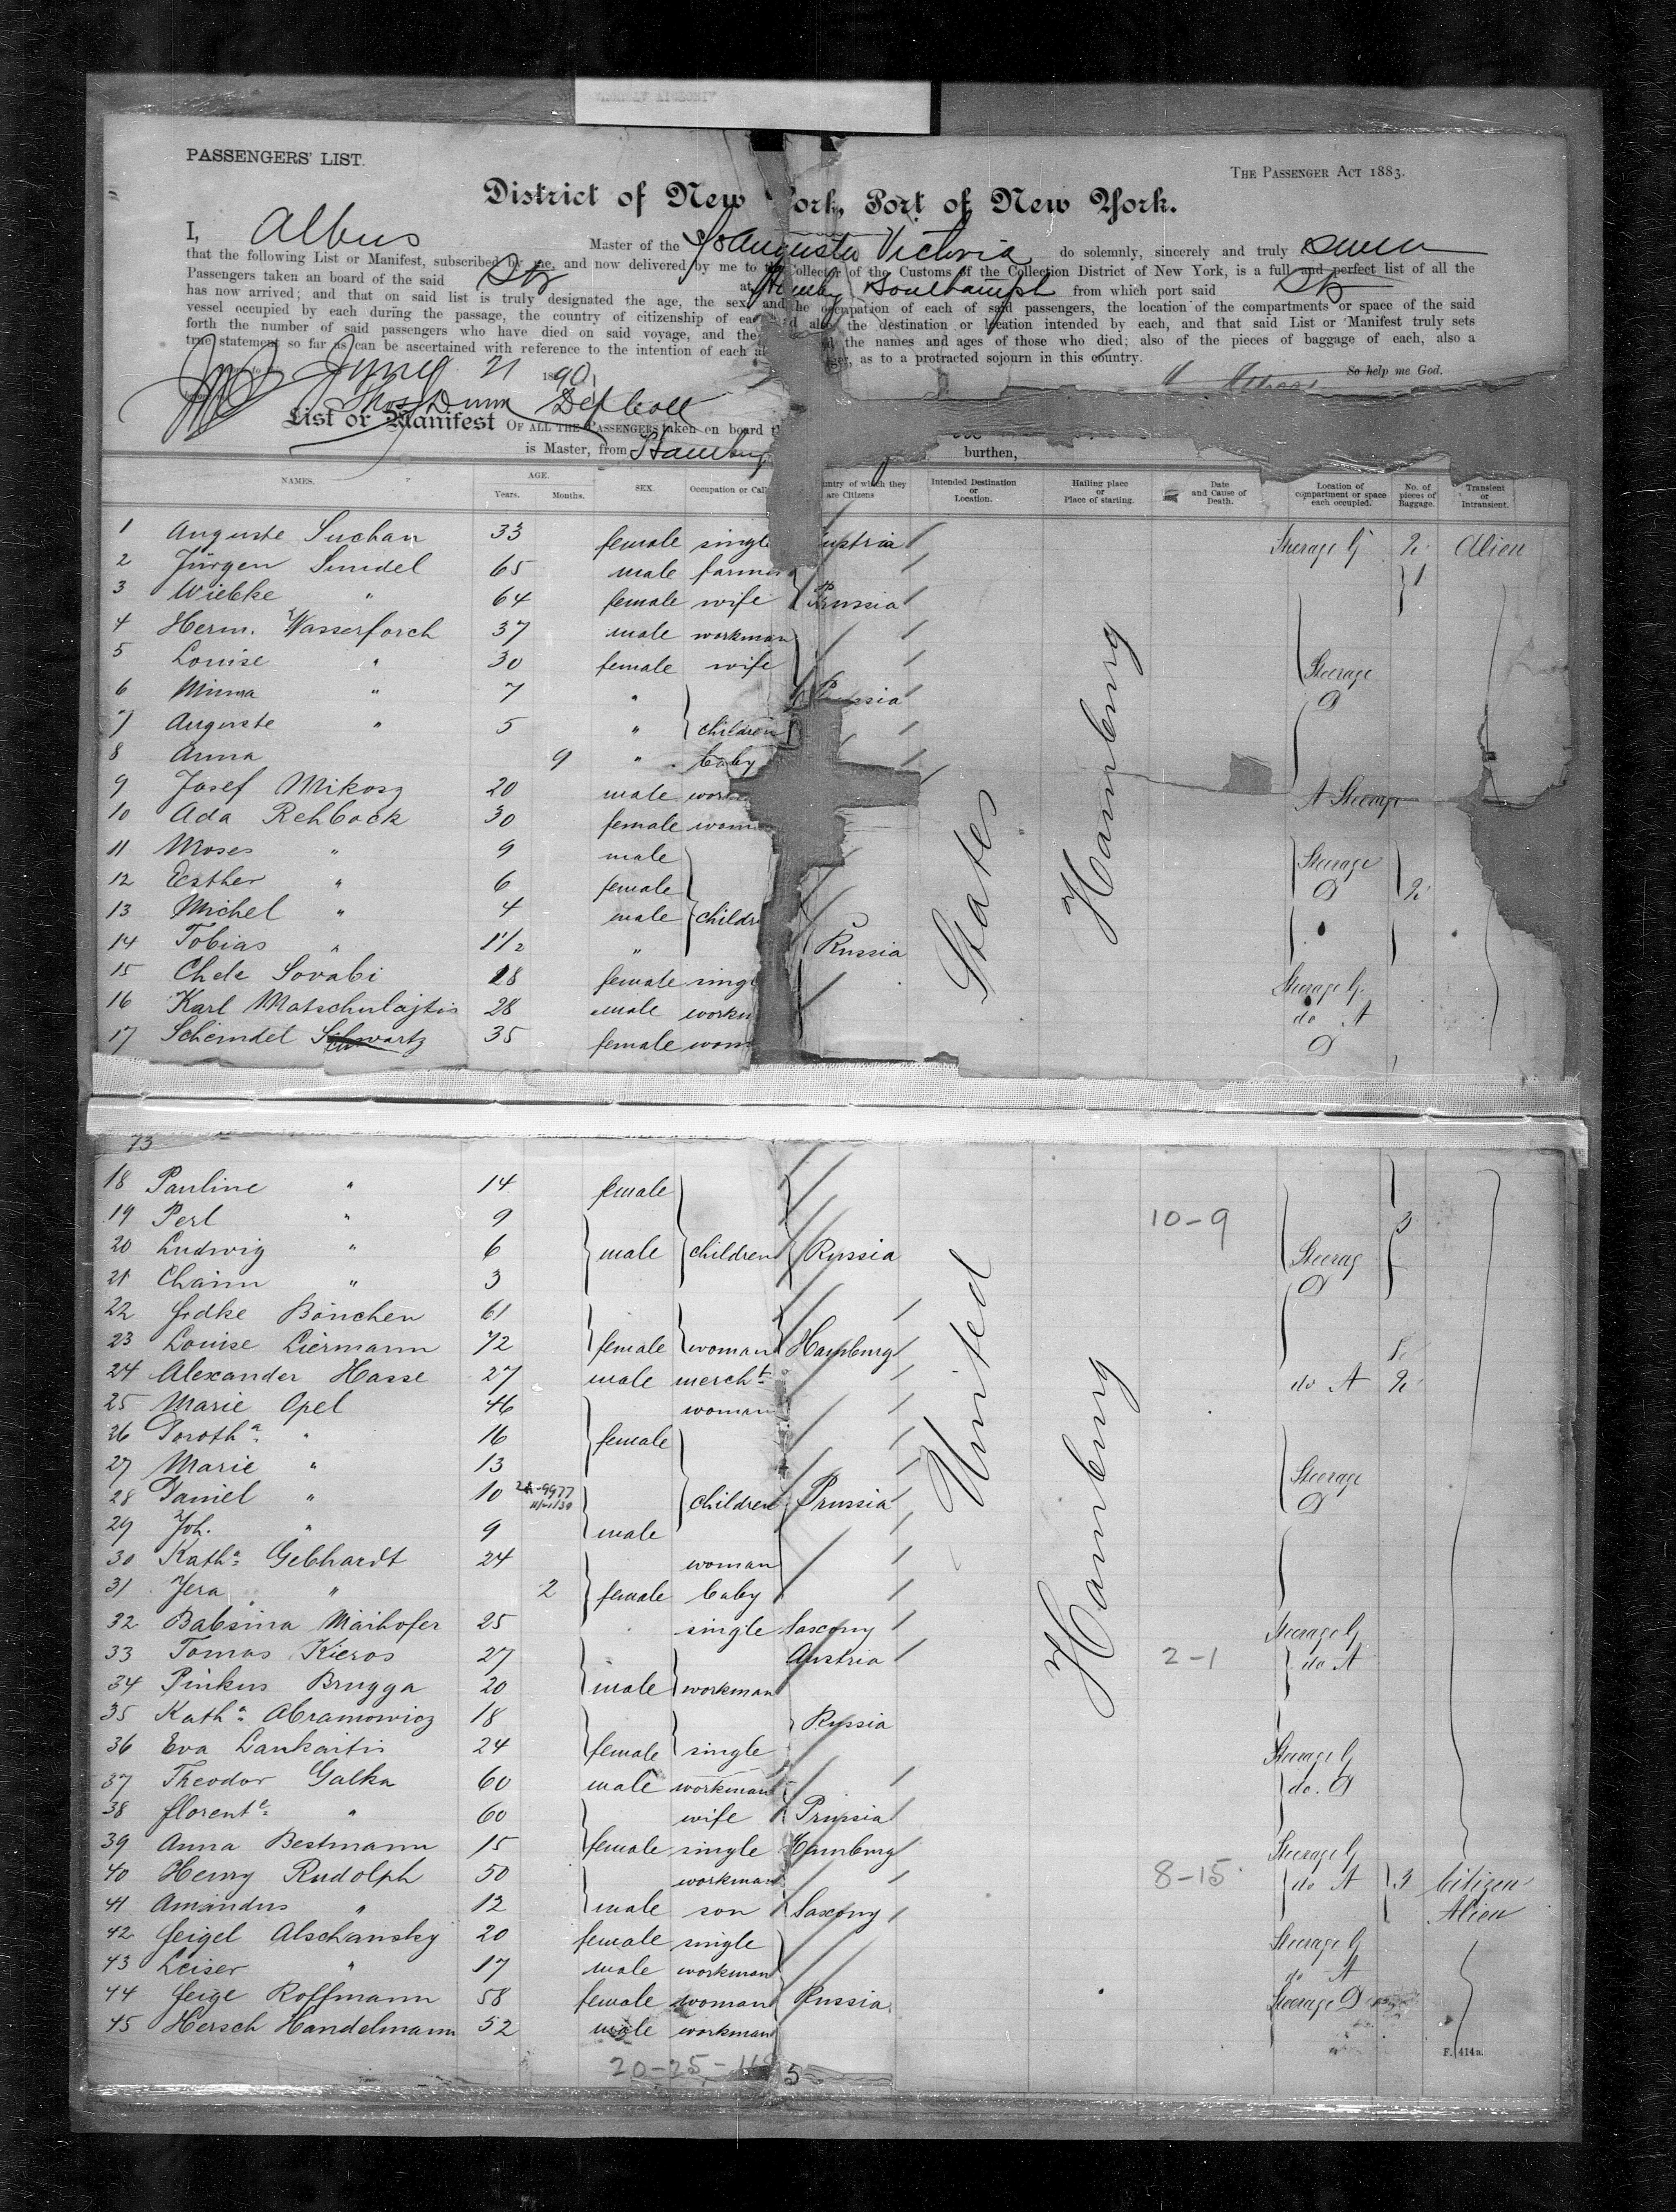 PASSENGERS' LIST.
THE PASSENGER ACT 1883.
District of New York, Port of New York.
I, Albers Master of the S/S Augusta Victoria do solemnly, sincerely and truly swear
that the following List or Manifest, subscribed by me, and now delivered by me to the Collector of the Customs of the Collection District of New York, is a full and perfect list of all the
Passengers taken on board of the said Str at Hamburg Southampt from which port said Str
has now arrived; and that on said list is truly designated the age, the sex and the occupation of each of said passengers, the location of the compartments or space of the said
vessel occupied by each during the passage, the country of citizenship of each and also the destination or location intended by each, and that said List or Manifest truly sets
forth the number of said passengers who have died on said voyage, and the names and ages of those who died; also of the pieces of baggage of each, also a
true statement so far as can be ascertained with reference to the intention of each as to a protracted sojourn in this country.
So help me God.
June 21 1890
Thos Dunn Dep Coll
List or Manifest OF ALL THE PASSENGERS taken on board
is Master, from Hamburg burthen,
NAMES. AGE. Years. Months. SEX. Occupation or Country of which they are Citizens Intended Destination or Location. Hailing place or Place of starting. Date and Cause of Death. Location of compartment or space each occupied. No. of pieces of Baggage. Transient or Intransient.
1 Auguste Suchan 33 female single Austria Steerage G 2 Alien
2 Jürgen Sundel 65 male farmer 1
3 Wiebke " 64 female wife Prussia
4 Herm. Wasserforch 37 male workman
5 Louise " 30 female wife Steerage D
6 Minna " 7 " Prussia
7 Auguste " 5 " children
8 Anna 9 " baby
9 Josef Mikosz 20 male A Steerage
10 Ada Rehbock 30 female
11 Moses " 9 male Steerage
12 Esther " 6 female D 2
13 Michel " 4 male children
14 Tobias " 1 1/2 " Russia
15 Chele Sovabi 18 female single Steerage G.
16 Karl Matschulajtis 28 male do A
17 Scheindel Schwartz 35 female D
73
18 Pauline " 14 female
19 Perl " 9 10-9 3
20 Ludwig " 6 male children Russia Steerag
21 Chaim " 3 D
22 Jrdke Bönchen 61
23 Louise Liermann 72 female woman Hamburg
24 Alexander Hasse 27 male mercht. do A 2
25 Marie Opel 46 woman
26 Dorotha. " 16 female
27 Marie " 13 Steerage
28 Daniel " 10 children Prussia D
29 Joh. " 9 male
30 Katha. Gebhardt 24 woman
31 Jera " 2 female baby
32 Babsina Maihofer 25 single Saxony Steerage G
33 Tomas Kieros 27 Austria 2-1 do A
34 Pinkus Brugga 20 male workman
35 Katha. Abramowicz 18 Russia
36 Eva Lankaitis 24 female single Steerage G
37 Theodor Galka 60 male workman do. D
38 florente. " 60 wife Prussia
39 Anna Bestmann 15 female single Hamburg Steerage G
40 Henry Rudolph 50 workman 8-15 do A 3 Citizen
41 Amandus " 12 male son Saxony Alien
42 feigel Alschansky 20 female single Steerage G
43 Leiser " 17 male workman do A
44 feige Roffmann 58 female woman Russia Steerage D
45 Hersch Handelmann 52 male workman
United States
Hamburg
Hamburg
F. 414a.